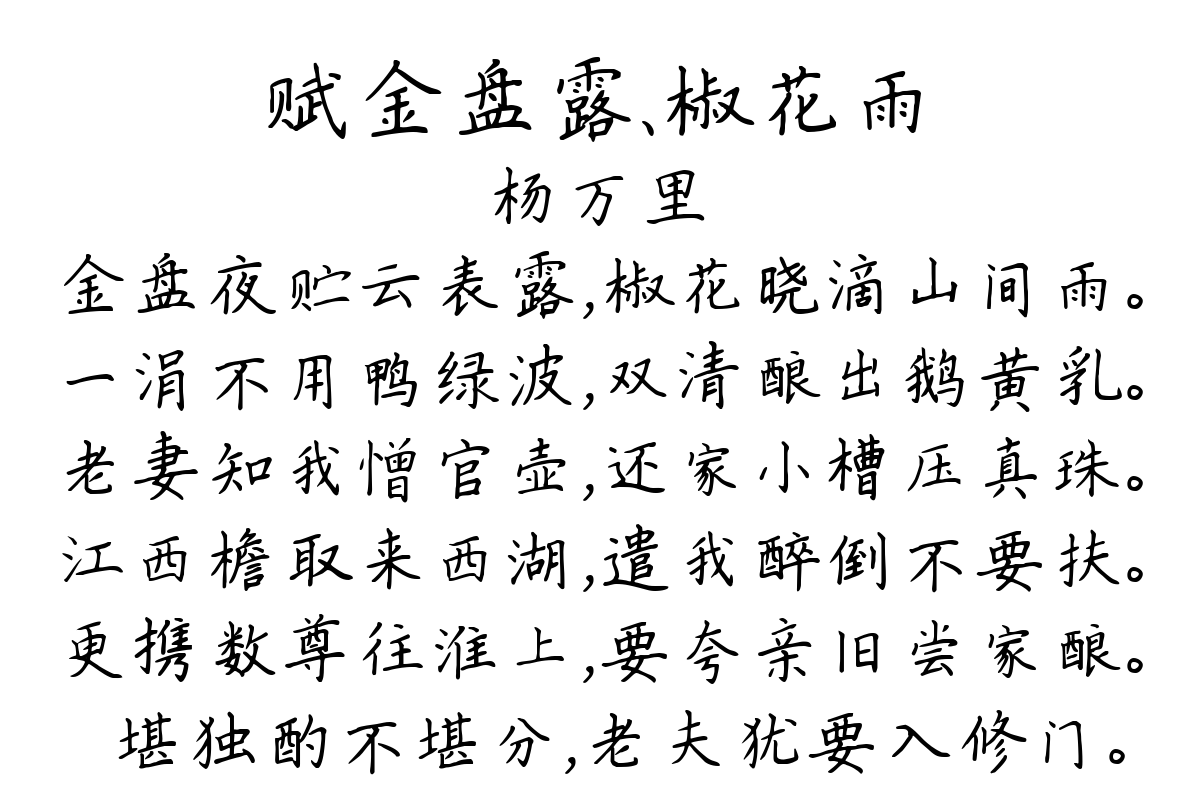 赋金盘露、椒花雨
杨万里
金盘夜贮云表露,椒花晓滴山间雨。
一涓不用鸭绿波,双清酿出鹅黄乳。
老妻知我憎官壶,还家小槽压真珠。
江西檐取来西湖,遣我醉倒不要扶。
更携数尊往淮上,要夸亲旧尝家酿。
堪独酌不堪分,老夫犹要入修门。